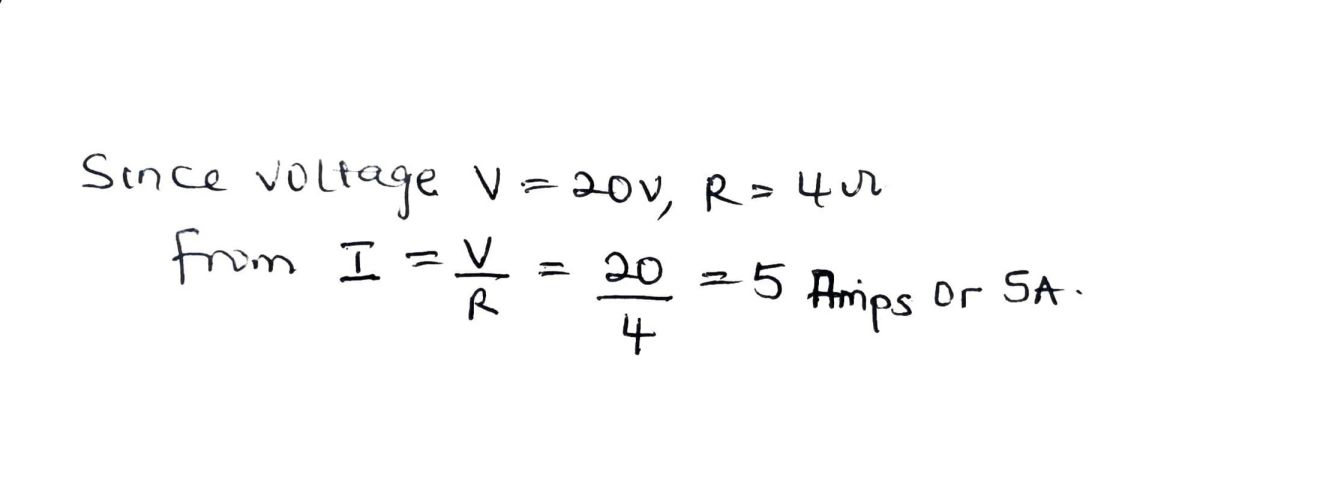 Since voltage V = 20V, R = 4Ω
from I = V/R = 20/4 = 5 Amps or 5A.